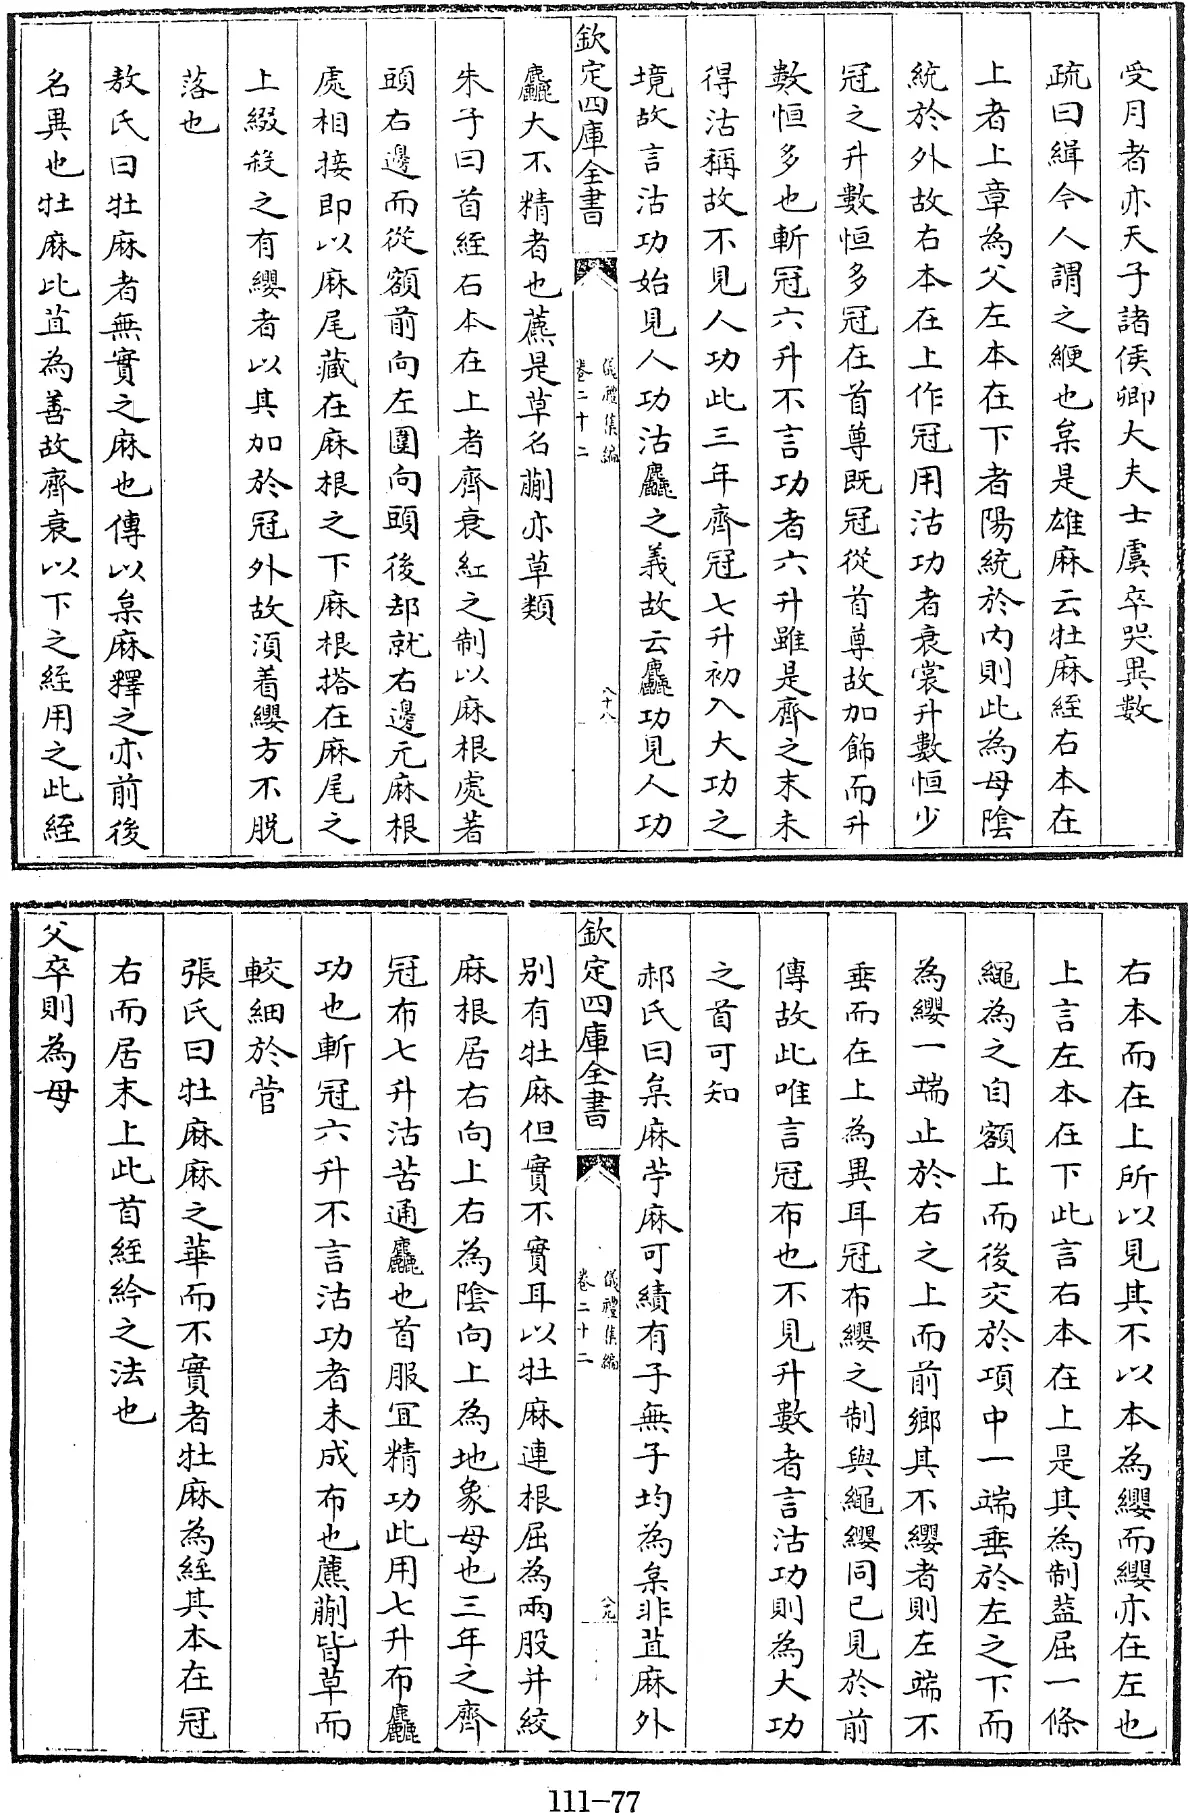 受月者亦天子諸侯卿大夫士虞卒哭異數
疏曰緝今人謂之緶也枲是雄麻云牡麻絰右本在
上者上章為父左本在下者陽統於内則此為母陰
統於外故右本在上作冠用沽功者衰裳升數恒少
冠之升數恒多冠在首尊既冠從首尊故加飾而升
數恒多也斬冠六升不言功者六升雖是齊之末未
得沽稱故不見人功此三年齊冠七升初入大功之
境故言沽功始見人功沽麤之義故云麤功見人功
欽定四庫全書
儀禮集編
卷二十二
八十八
麤大不精者也藨是草名蒯亦草類
朱子曰首絰右本在上者齊衰絰之制以麻根處著
頭右邊而從額前向左圍向頭後却就右邊元麻根
處相接即以麻尾藏在麻根之下麻根搭在麻尾之
上綴殺之有纓者以其加於冠外故須着纓方不脱
落也
敖氏曰牡麻者無實之麻也傳以枲麻釋之亦前後
名異也牡麻比苴為善故齊衰以下之絰用之此絰
右本而在上所以見其不以本為纓而纓亦在左也
上言左本在下此言右本在上是其為制葢屈一條
繩為之自額上而後交於項中一端垂於左之下而
為纓一端止於右之上而前鄉其不纓者則左端不
垂而在上為異耳冠布纓之制與繩纓同已見於前
傳故此唯言冠布也不見升數者言沽功則為大功
之首可知
郝氏曰枲麻苧麻可績有子無子均為枲非苴麻外
欽定四庫全書
儀禮集編
卷二十二
八十九
别有牡麻但實不實耳以牡麻連根屈為兩股并絞
麻根居右向上右為陰向上為地象母也三年之齊
冠布七升沽苦通麤也首服宜精功此用七升布麤
功也斬冠六升不言沽功者未成布也藨蒯皆草而
較細於菅
張氏曰牡麻麻之華而不實者牡麻為絰其本在冠
右而居末上此首絰紟之法也
父卒則為母
111-77